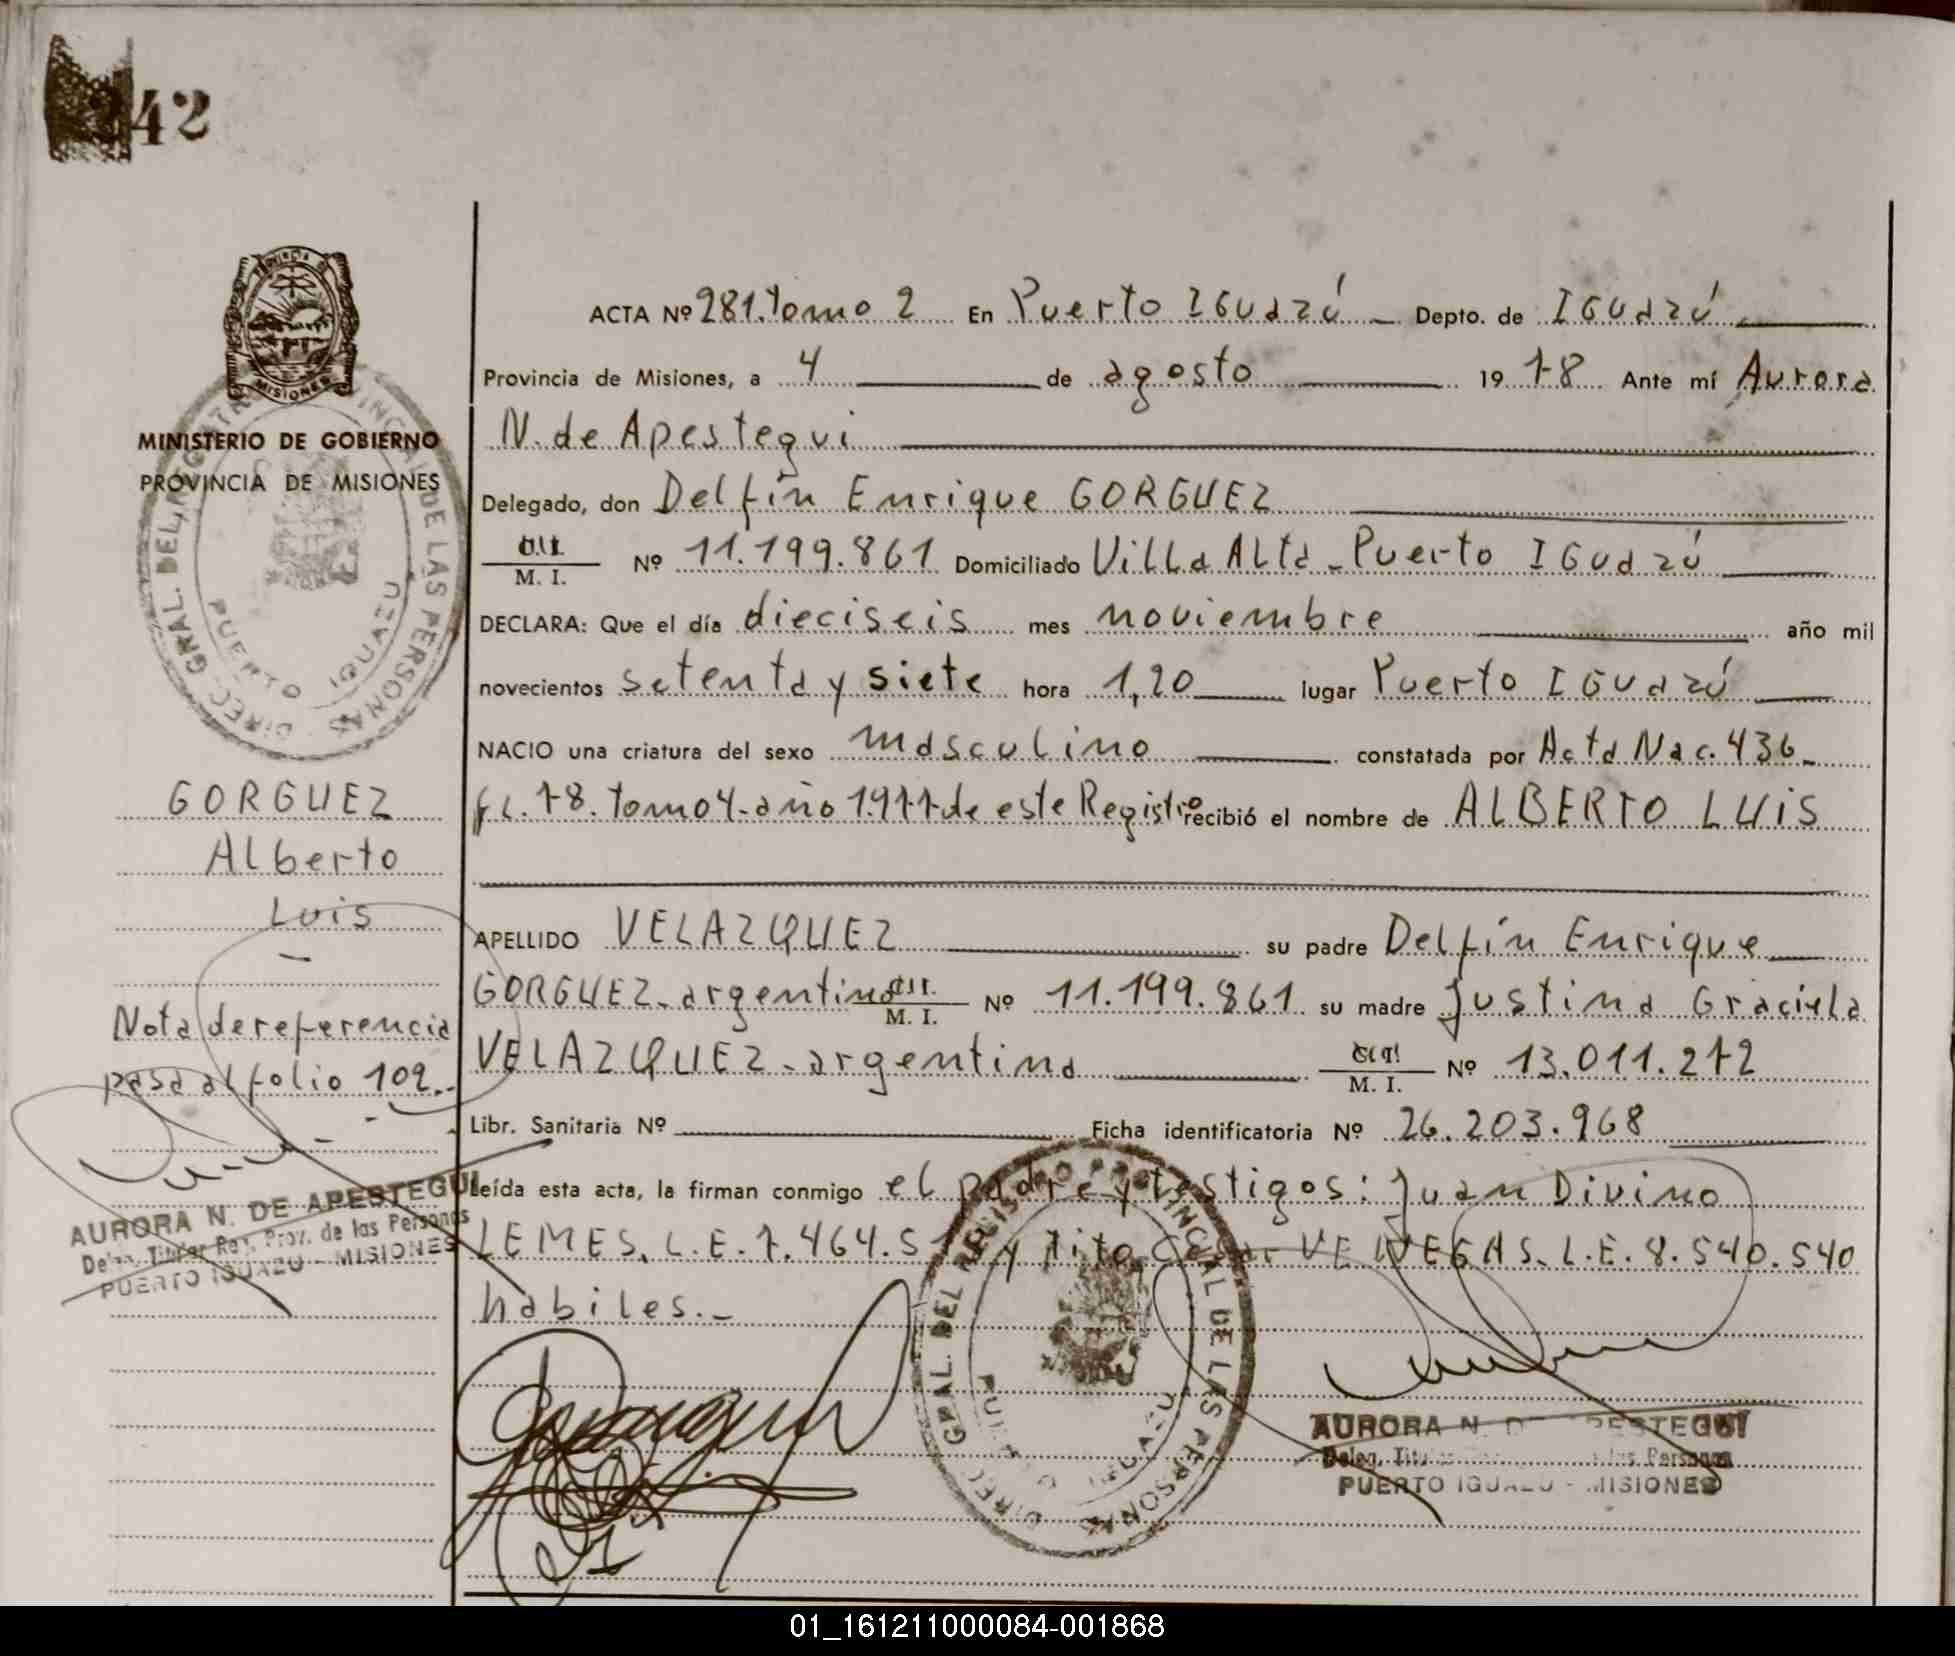 42
ACTA Nº 281. Tomo 2 En Puerto IGuazú Depto. de IGuazú
Provincia de Misiones, a 4 de agosto 1978 Ante mí Aurora
N. de Apestegui
MINISTERIO DE GOBIERNO
PROVINCIA DE MISIONES
Delegado, don Delfín Enrique GORGUEZ
M. I. Nº 11.199.861 Domiciliado Villa Alta - Puerto IGuazú
DECLARA: Que el día dieciseis mes noviembre año mil
novecientos setenta y siete hora 1,20 lugar Puerto IGuazú
NACIO una criatura del sexo masculino constatada por Acta Nac. 436-
fl. 78. Tomo 4- año 1977 de este Registro recibió el nombre de ALBERTO LUIS
APELLIDO VELAZQUEZ su padre Delfín Enrique
GORGUEZ - argentino M. I. Nº 11.199.861 su madre Justina Graciela
VELAZQUEZ - argentina M. I. Nº 13.011.272
Libr. Sanitaria Nº Ficha identificatoria Nº 26.203.968
Leída esta acta, la firman conmigo el padre y testigos: Juan Divino
LEMES. L.E. 7.464.5 y Tito VENEGAS. L.E. 8.540.540
habiles.-
GORGUEZ
Alberto
Luis
Nota de referencia
pasa al folio 102.-
AURORA N. DE APESTEGUI
Deleg. Titular Reg. Prov. de las Personas
PUERTO IGUAZU - MISIONES
DIREC. GRAL. DEL REGISTRO PROVINCIAL DE LAS PERSONAS
PUERTO IGUAZU
DIREC. GRAL. DEL REGISTRO PROVINCIAL DE LAS PERSONAS
PUERTO IGUAZU
AURORA N. DE APESTEGUI
Deleg. Titular Personas
PUERTO IGUAZU - MISIONES
01_161211000084-001868